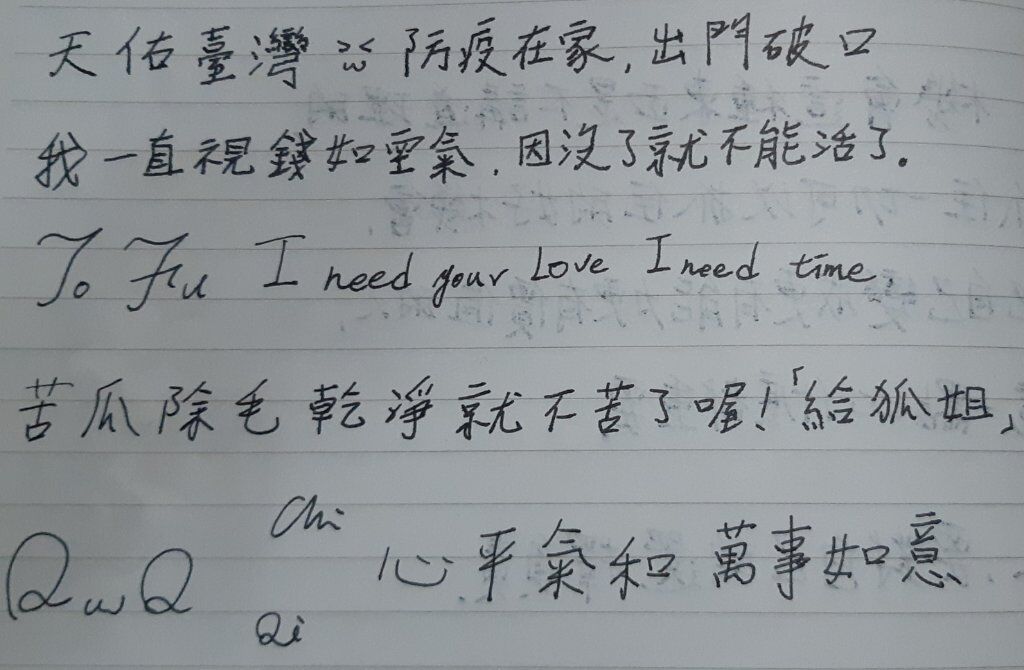 天佑臺灣 >w< 防疫在家,出門破口
我一直視錢如空氣,因沒了就不能活了。
To Fu I need your Love I need time.
苦瓜除毛乾淨就不苦了喔!「給狐姐」
QwQ Chi Qi 心平氣和 萬事如意